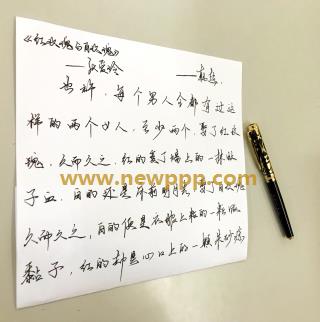 《红玫瑰与白玫瑰》
——张爱玲
也许,每个男人全都有过这
样的两个女人,至少两个。娶了红玫
瑰,久而久之,红的变了墙上的一抹蚊
子血,白的还是床前明月光;娶了白玫瑰
www.newppp.com
久而久之,白的便是衣服上粘的一粒饭
黏子,红的却是心口上的一颗朱砂痣